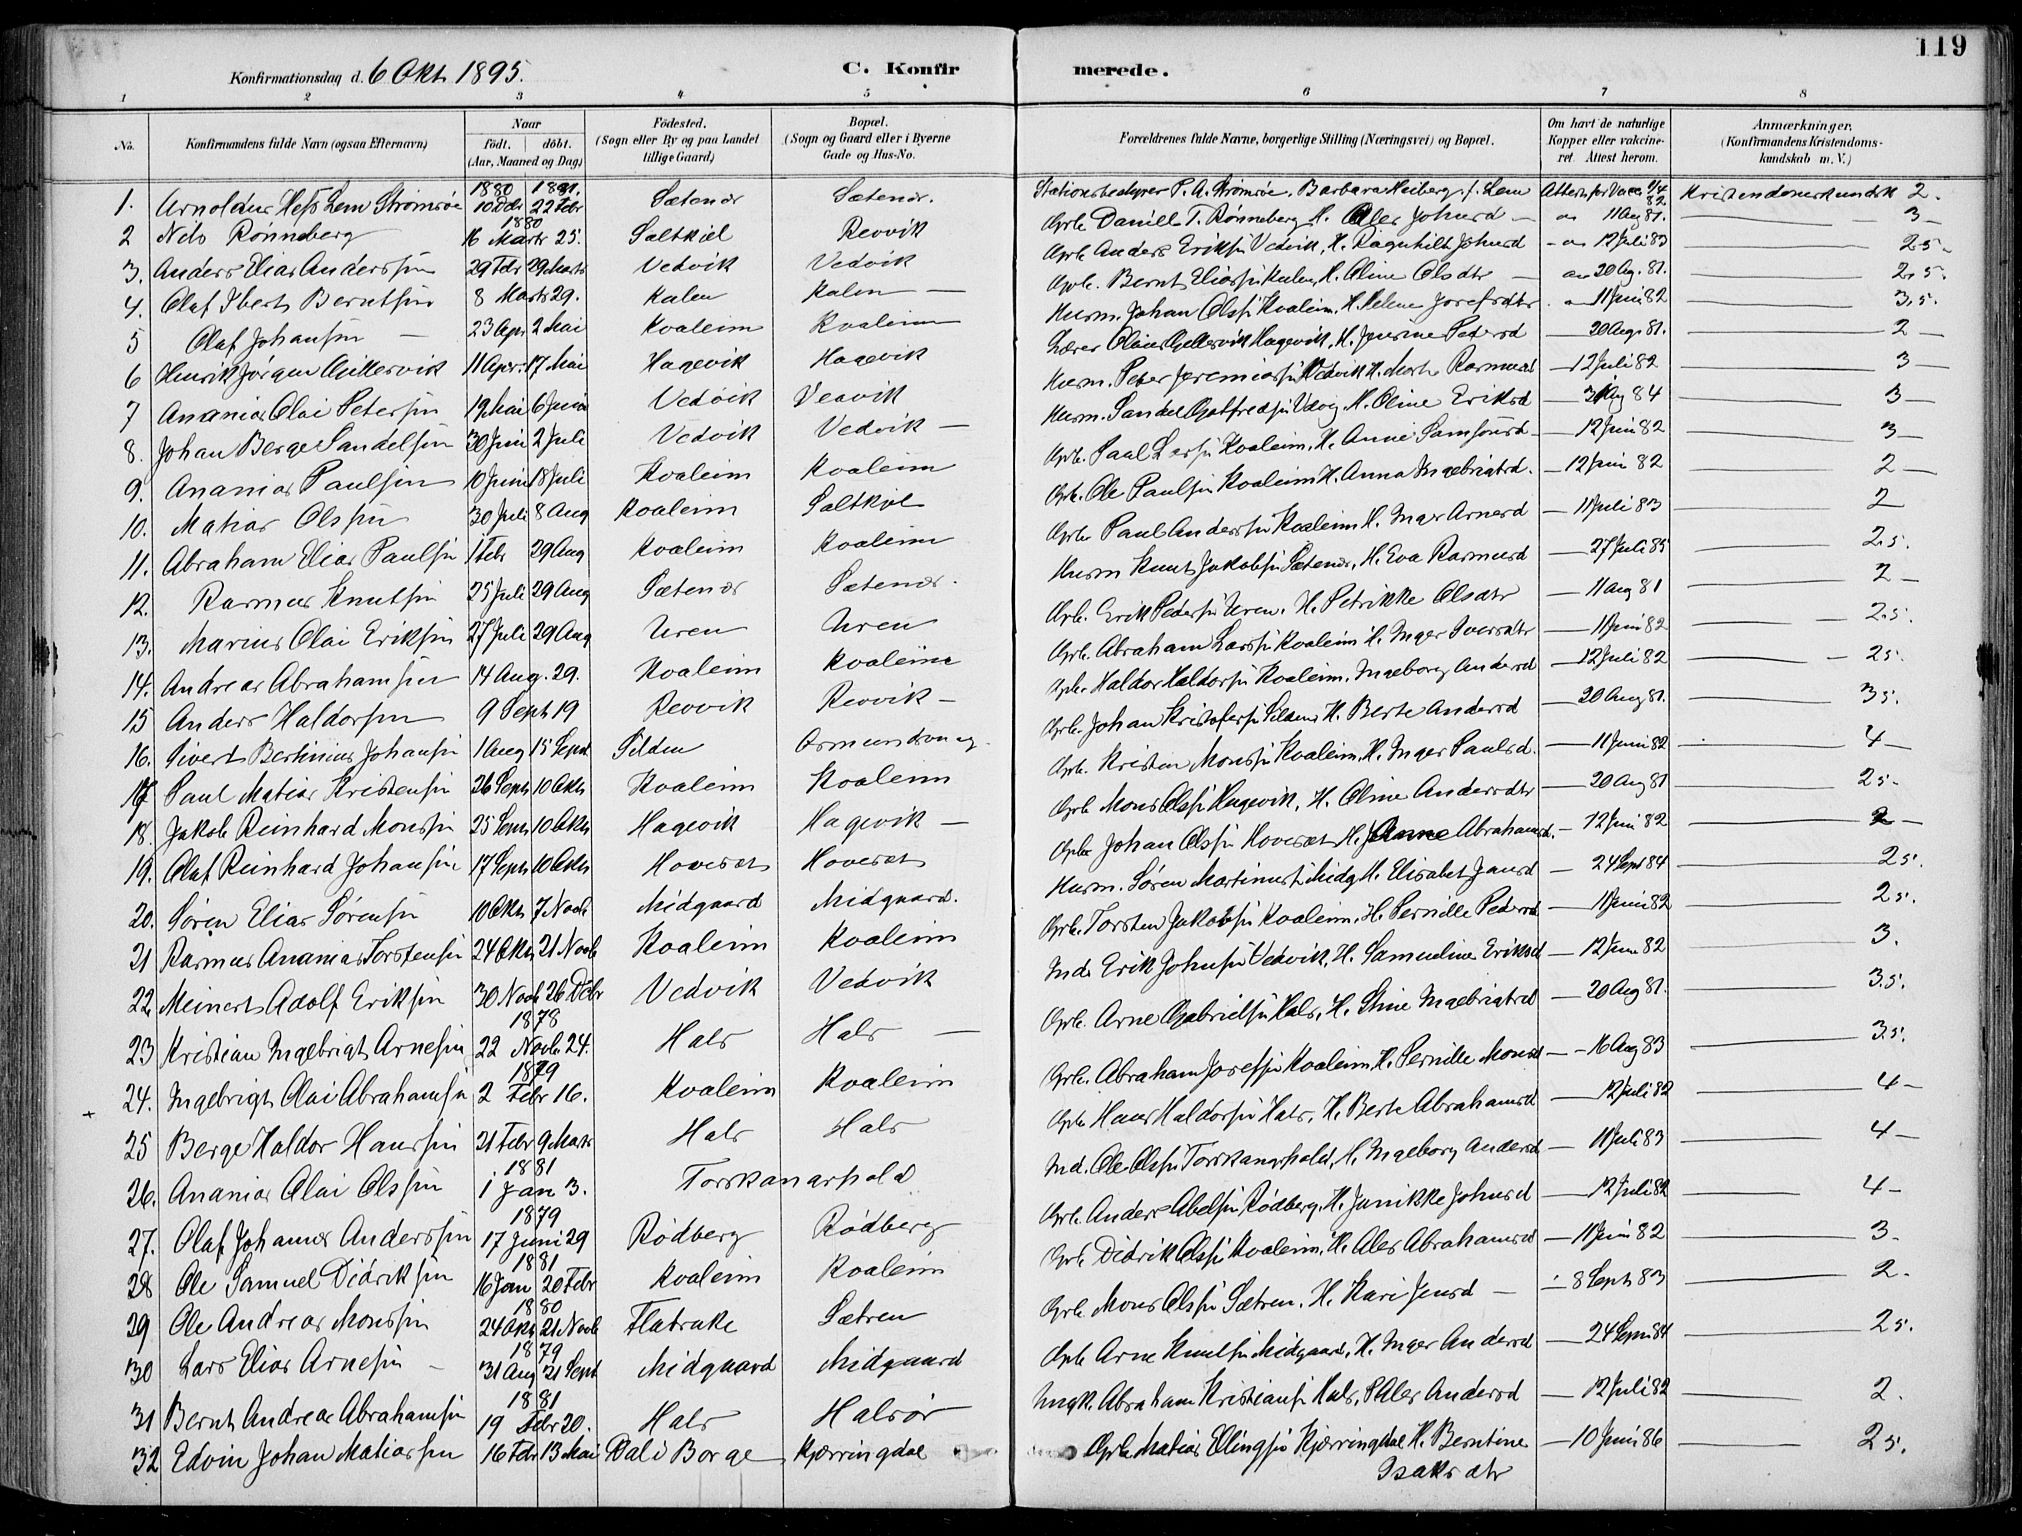 119
Konfirmationsdag d. 6 Okt 1895.
C. Konfir merede.
1 2 3 4 5 6 7 8
No.
Konfirmandens fulde Navn (ogsaa Efternavn)
Naar
født. døbt.
(Aar, Maaned og Dag)
Fødested.
(Sogn eller By og paa Landet
tillige Gaard)
Bopæl.
(Sogn og Gaard eller i Byerne
Gade og Hus-No.
Forældrenes fulde Navne, borgerlige Stilling (Næringsvei) og Bopæl.
Om havt de naturlige
Kopper eller vakcine-
ret. Attest herom.
Anmærkninger.
(Konfirmandens Kristendoms-
kundskab m. V.)
1880 1881.
1. Arnoldus Hess Lem Strømsøe 10 Decbr 22 Febr Sætenes Sætenes. P. A. Strømsøe, Barbara Heiberg f. Lem Kristendomskundsk 2.
1880
2 Nils Rønneberg 16 Marts 25. Saltkjel Revvik Grb. Daniel T. Rønneberg H. Ales Johnsd - 11 Aug 81. 3-
3. Anders Elias Anderssøn 29 Febr 29 Marts Vedvik Vedvik Grb. Anders Eriksøn Vedvik, H. Ragnhilt Johnsd - 12 Juli 83 2.5-
4. Olaf Ibert Berntsøn 8 Marts 29. Kalen Kalen - Grb. Bernt Eliassøn Kalen, H. Oline Olsdtr - 20 Aug. 81. 2.5.
5 Olaf Johansøn - 23 Apr 2 Mai Kvaleim Kvaleim Husm. Johan Olssøn Kvaleim, H. Helene Josefsdtr 11 Juni 82 3.5.
6 Henrik Jørgen Gjettervik 11 Apr. 17 Mai Hagevik Hagevik Lærer Olaus Gjettervik Hagevik, H. Jensine Pedersd 20 Aug 81. 2-
7 Ananias Olai Petersøn 19 Mai 6 Juni Vedvik Vedvik Husm. Peter Jeremiassøn Vedvik H. Marte Rasmusd - 12 Juli 82 3-
8. Johan Berge Sandelsøn 30 Juni 2 Juli Vedvik Vedvik - Husm. Sandel Gotfredsøn H. Oline Eriksd - 84 3-
9. Ananias Paulsøn 10 Juni 18 Juli Kvaleim Kvaleim Grb. Paul Larssøn Kvaleim, H. Anne Samsonsd - 12 Juni 82 3-
10. Matias Olssøn 30 Juli 8 Aug Kvaleim Saltkjel Grb. Ole Paulsøn Kvaleim H. Anna Ingebrigtsd. - 12 Juni 82 2-
11. Abraham Elias Paulsøn 1 Febr 29 Aug Kvaleim Kvaleim Grb. Paul Anderssøn Kvaleim H. Inger Arnesd - 11 Juli 83 2
12. Rasmus Knutsøn 25 Juli 29 Aug Sætenes Sætenes. Husm Knut Jakobsøn Sætenes, H. Eva Rasmusd - 27 Juli 85 2.5.
13. Marius Olai Eriksøn 27 Juli 29 Aug Uren Uren Grb. Erik Pedersøn Uren. H. Petrikke Olsdtr - 11 Aug 81 2-
14. Andreas Abrahamsøn 14 Aug. 29. Kvaleim Kvaleim Grb. Abraham Larssøn Kvaleim H. Inger Iversdtr - 11 Juni 82 2.5.
15 Anders Haldorsøn 9 Sept 19 Revvik Revvik - Grb. Haldor Haldorsøn Kvaleim. Ingeborg Andersd - 12 Juli 82 25.
16. Sivert Bertinius Johansøn 1 Aug 15 Sept Silden Osmundsvaag. Grb. Johan Kristofersøn Silden H. Berte Andersd - 20 Aug 81. 35.
17 Paul Matias Kristensøn 26 Sept 10 Okt Kvaleim Kvaleim Grb. Kristen Monssøn Kvaleim, H. Inger Paulsd. - 11 Juni 82 4-
18. Jakob Reinhard Monssøn 25 Sept 10 Okt Hagevik Hagevik - Grb Mons Olssøn Hagevik, H. Oline Andersdtr - 20 Aug 81 25-
19. Olaf Reinhard Johansøn 17 Sept 10 Okt Hoveset Hoveset Grb. Johan Olssøn Hoveset H. Anne Abrahamsd. - 12 Juni 82 2-
20. Søren Elias Sørensøn 10 Okt 7 Novb Midgaard Midgaard. Husm. Søren Martinussøn Midg. H. Elisabet Jansd - 24 Sept 84 25.
21 Rasmus Ananias Torstensøn 24 Okt 21 Novb Kvaleim Kvaleim Grb. Torsten Jakobsøn Kvaleim, H. Pernille Pedersd - 11 Juni 82 25.
22. Meinert Adolf Eriksøn 30 Novb 26 Decbr Vedvik Vedvik Ind. Erik Johnsøn Vedvik, H. Samueline Eriksd - 12 Juni 82 3.
1878
23 Kristian Ingebrigt Arnesøn 22 Novb 24. Hals Hals - Grb. Arne Gabrielsøn Hals, H. Stine Ingebrigtsd - 20 Aug 81. 3.5.
1879
24. Ingebrigt Olai Abrahamsøn 2 Febr 16. Kvaleim Kvaleim Grb. Abraham Josefsøn Kvaleim, H. Pernille Monsd - 16 Aug 83 35.
25 Berge Haldor Hanssøn 21 Febr 9 Marts Hals Hals Grb. Hans Haldorsøn Hals, H. Berte Abrahamsd - 12 Juli 82 4-
1881
26. Ananias Olai Olssøn 1 Jan 3. Torskangshold Ind. Ole Olssøn Torskangshold, H. Ingeborg Andersd - 11 Juli 83 4-
1879
27. Olaf Johannes Anderssøn 17 Juni 29 Rødberg Rødberg Grb. Anders Abelsøn Rødberg, H. Janikke Johnsd - 12 Juli 82 4-
1881
28 Ole Samuel Didriksøn 16 Jan 20 Febr Kvaleim Kvaleim Grb. Didrik Olssøn Kvaleim, H. Ales Abrahamsd - 11 Juni 82 3.
1880
29 Ole Andreas Monssøn 24 Okt 21 Novb Flatrake Sætren Grb. Mons Olssøn Sætren, H. Kari Jensd - 8 Sept 83 2.
1879
30 Lars Elias Arnesøn - 31 Aug 21 Sept Midgaard Midgaard Grb Arne Knutsøn Midgaard, H. Inger Andersd - 24 Sept 84 25.
1881
31 Bernt Andreas Abrahamsøn 19 Febr 20. Hals Halsør Abraham Kristiansøn Hals, P. Ales Andersd - 12 Juli 82 2.
32 Edvin Johan Matiassøn 16 Febr 13 Mai Dal i Borge Kjærringdal Grb Matias Ellingsøn Kjærringdal H. Berntine - 10 Juni 86 25.
Isaksdtr